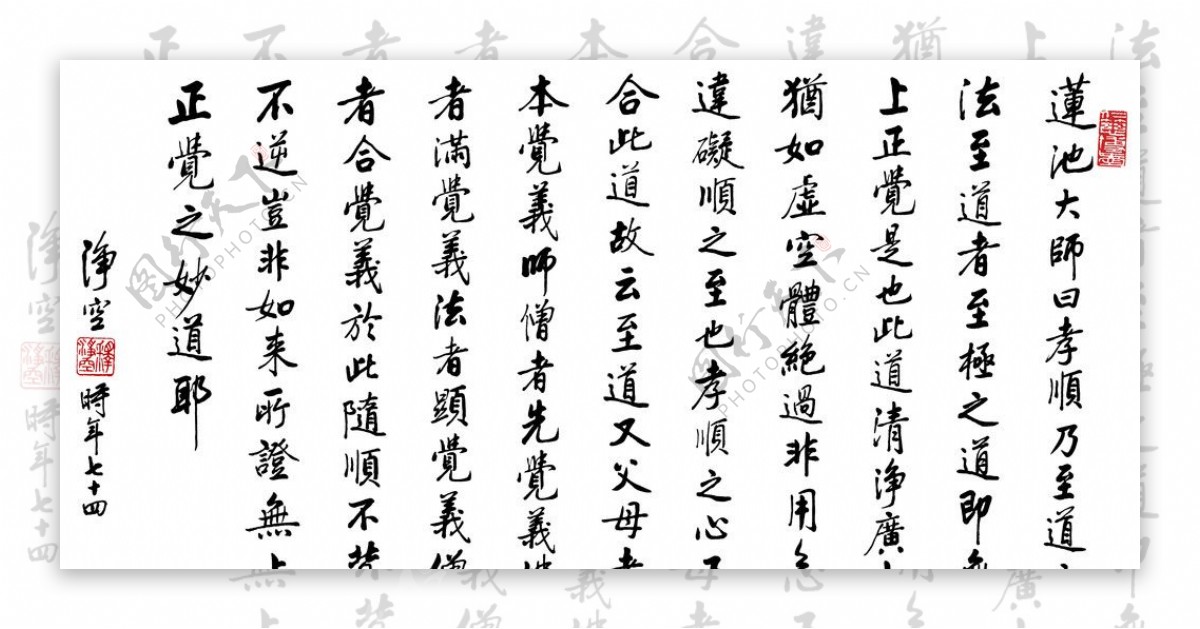 蓮池大師曰孝順乃至道
法至道者至極之道即
上正覺是也此道清淨廣
猶如虛空體絕過非用
違礙順之至也孝順之心
合此道故云至道又父母
本覺義師僧者先覺義
者滿覺義法者顯覺義僧
者合覺義於此隨順不
不逆豈非如来所證無上
正覺之妙道耶
淨空
時年七十四